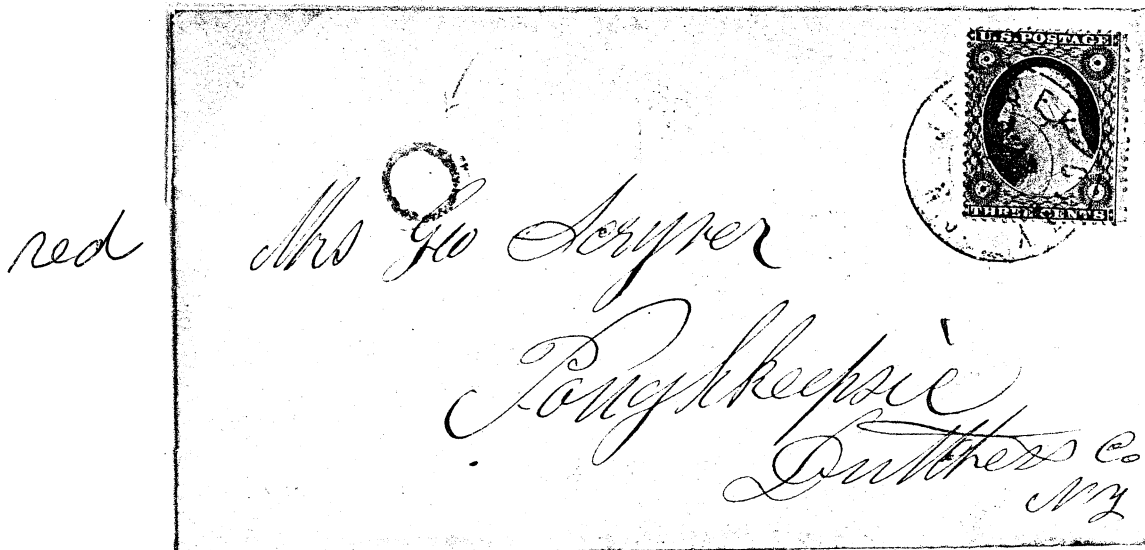 U.S. POSTAGE
THREE CENTS
red
Mrs Geo Scryver
Poughkeepsie
Dutchess Co
NY